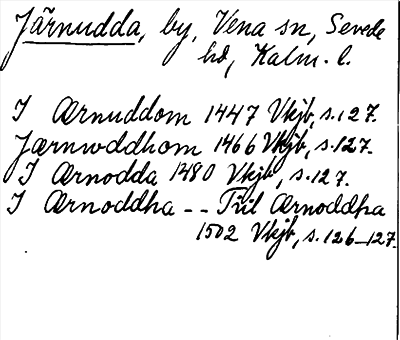 Järnudda, by, Vena sn, Sevede
hd, Kalm. l.
I Ærnuddom 1447 Vkjb, s. 127.
Jærnwddhom 1466 Vkjb, s. 127.
I Ærnodda 1480 Vkjb, s. 127.
I Ærnoddha -- Till Ærnoddha
1502 Vkjb, s. 126–127.